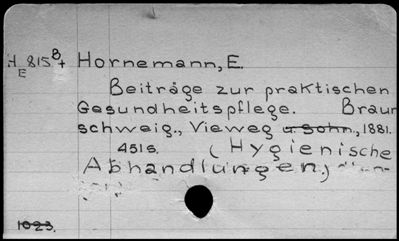 H 815⁸+ Hornemann, E.
E
Beiträge zur praktischen
Gesundheitspflege. Braun
schweig., Vieweg u. Sohn., 1881.
451s. (Hygienische
Abhandlungen)
1023.